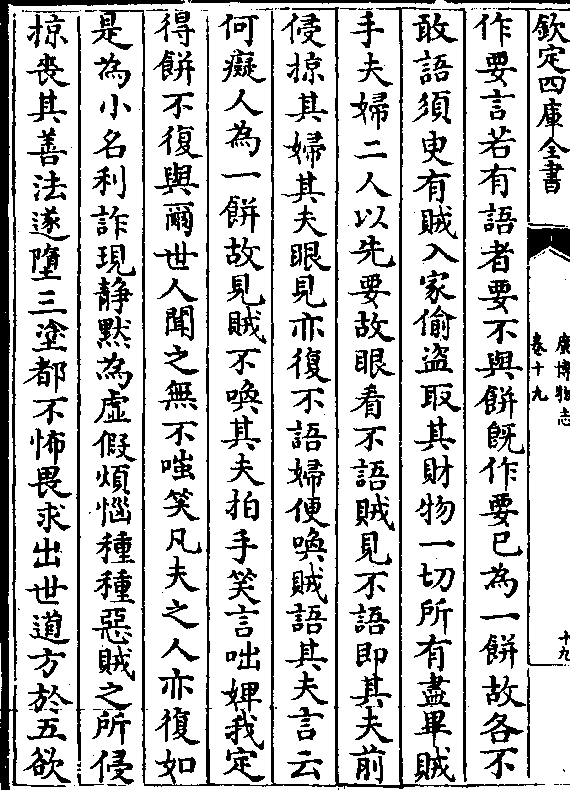 欽定四庫全書
廣博物志
卷十九
十九
作要言若有語者要不與餅既作要已為一餅故各不
敢語須臾有賊入家偷盜取其財物一切所有盡畢賊
手夫婦二人以先要故眼看不語賊見不語即其夫前
侵掠其婦其夫眼見亦復不語婦便喚賊語其夫言云
何癡人為一餅故見賊不喚其夫拍手笑言咄婢我定
得餅不復與爾世人聞之無不嗤笑凡夫之人亦復如
是為小名利詐現静默為虚假煩惱種種惡賊之所侵
掠喪其善法遂墮三塗都不怖畏求出世道方於五欲